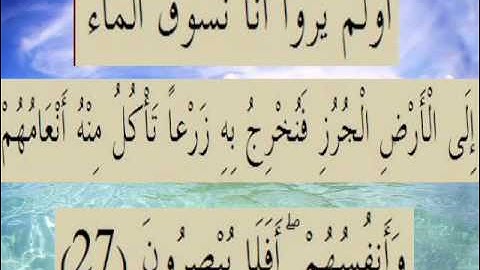 أولم يروا أنا نسوق الماء
إِلَى الْأَرْضِ الْجُرُزِ فَنُخْرِجُ بِهِ زَرْعاً تَأْكُلُ مِنْهُ أَنْعَامُهُمْ
وَأَنفُسُهُمْ ۖ أَفَلَا يُبْصِرُونَ (27)